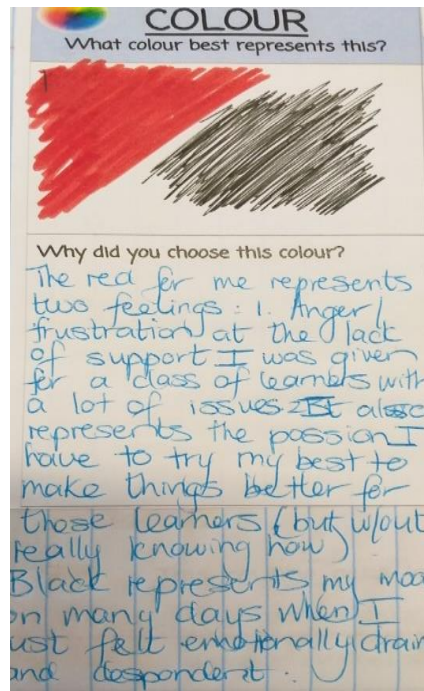 COLOUR
What colour best represents this?
Why did you choose this colour?
The red for me represents
two feelings : 1. Anger/
frustration at the lack
of support I was given
for a class of learners with
a lot of issues 2. It also
represents the passion I
have to try my best to
make things better for
those learners (but w/out
really knowing how)
Black represents my moo
on many days when I
ust felt emotionally drain
and despondent.